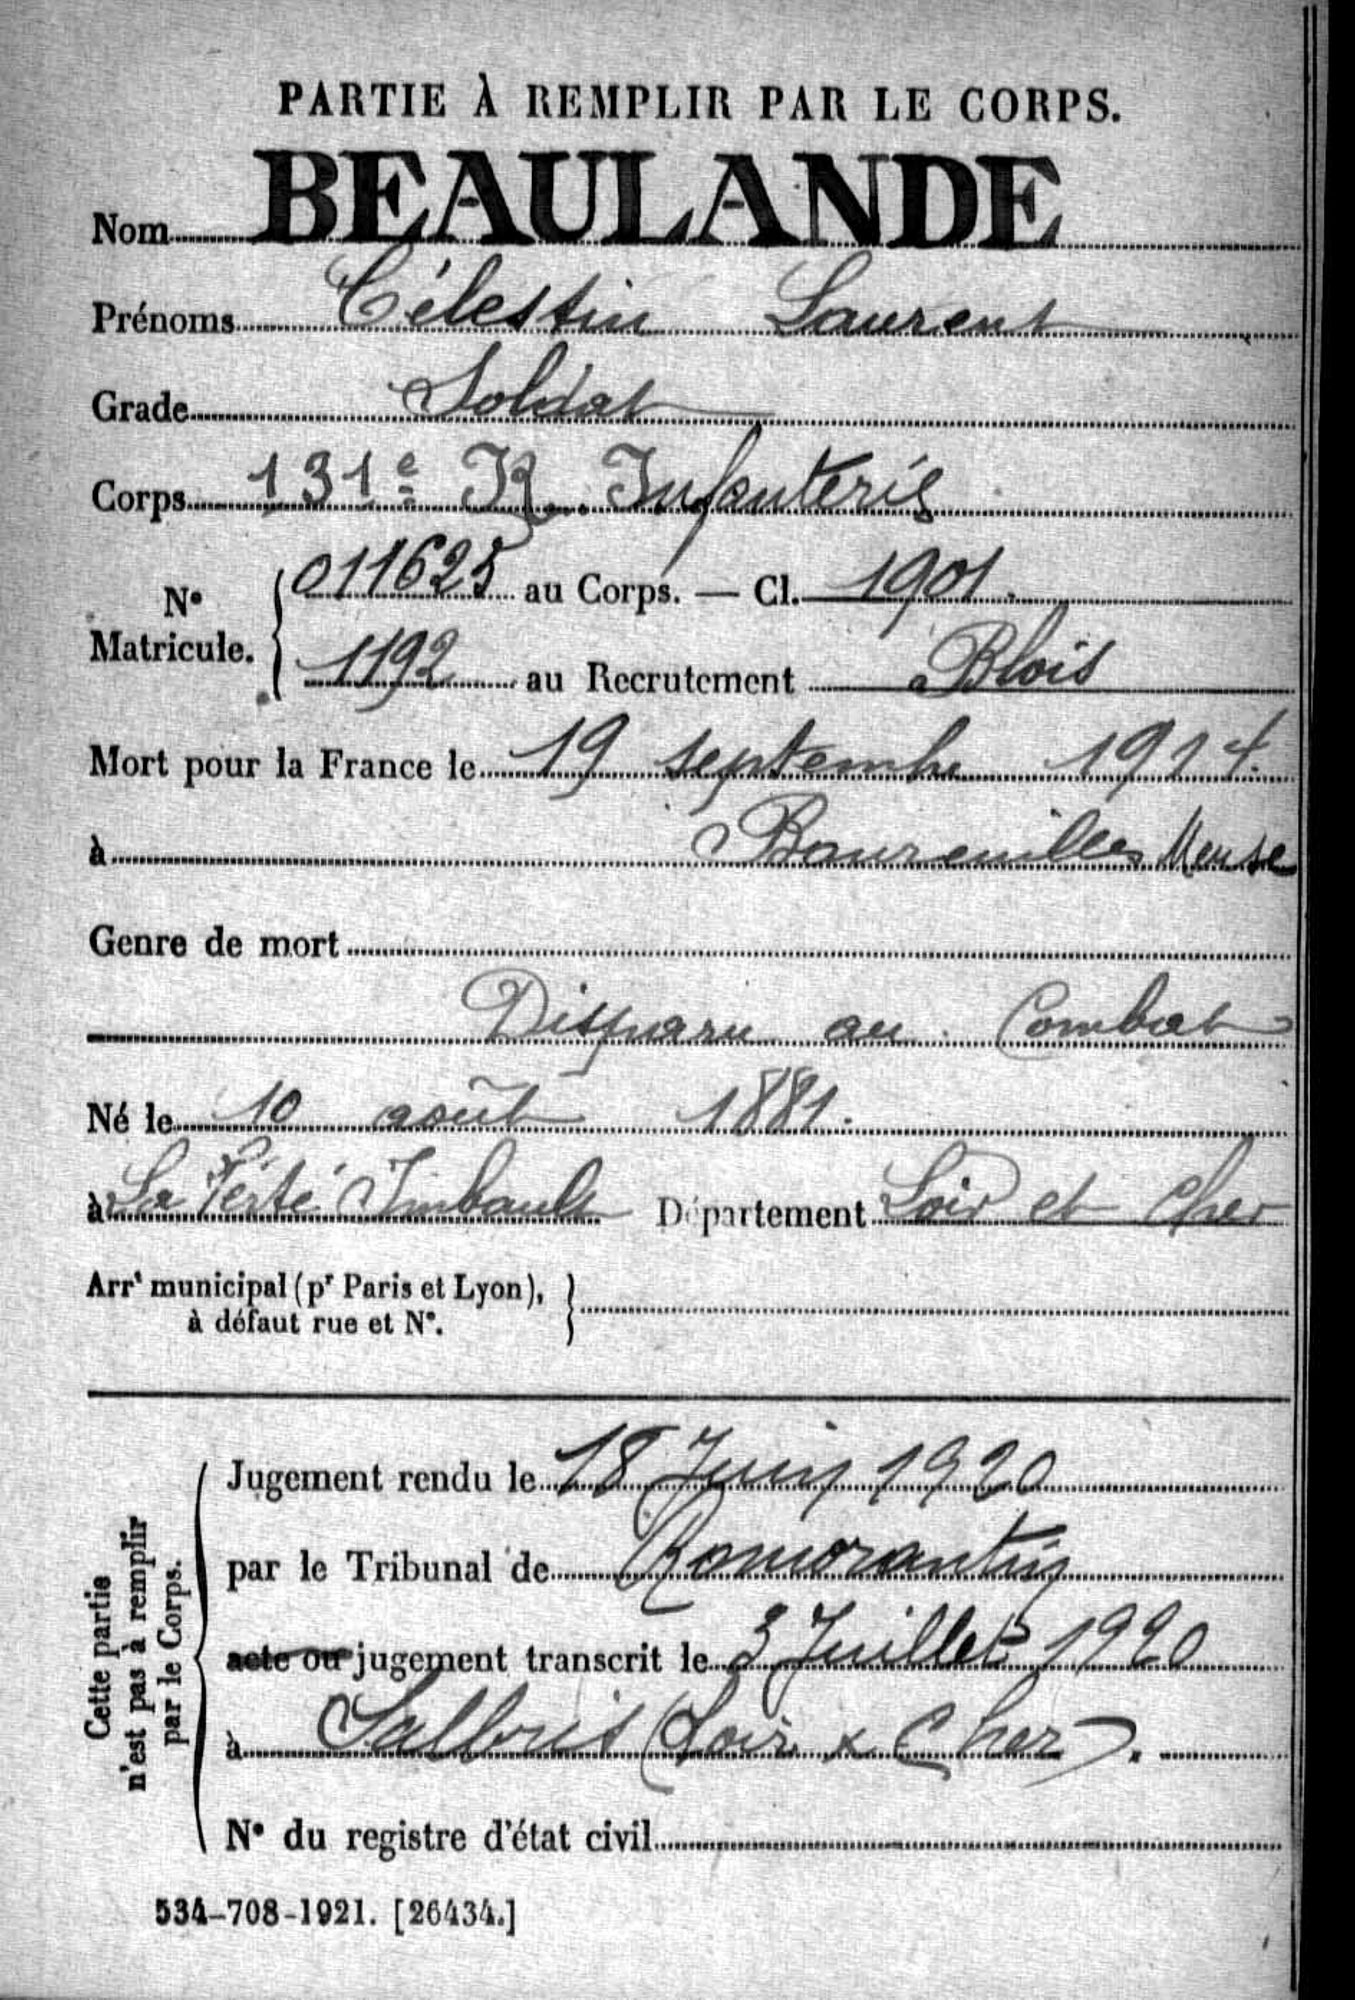 PARTIE À REMPLIR PAR LE CORPS.
Nom BEAULANDE
Prénoms Célestin Laurent
Grade Soldat
Corps 131e R. Infanterie
N° Matricule. 011625 au Corps. — Cl. 1901.
1192 au Recrutement Blois
Mort pour la France le 19 septembre 1914.
à Boureuilles Meuse
Genre de mort
Disparu au Combat
Né le 10 août 1881.
à La Ferté Imbault Département Loir et Cher
Arrt municipal (pr Paris et Lyon),
à défaut rue et N°.
Cette partie
n'est pas à remplir
par le Corps.
Jugement rendu le 18 Juin 1920
par le Tribunal de Romorantin
acte ou jugement transcrit le 3 Juillet 1920
à Salbris (Loir & Cher).
N° du registre d'état civil
534-708-1921. [26434.]